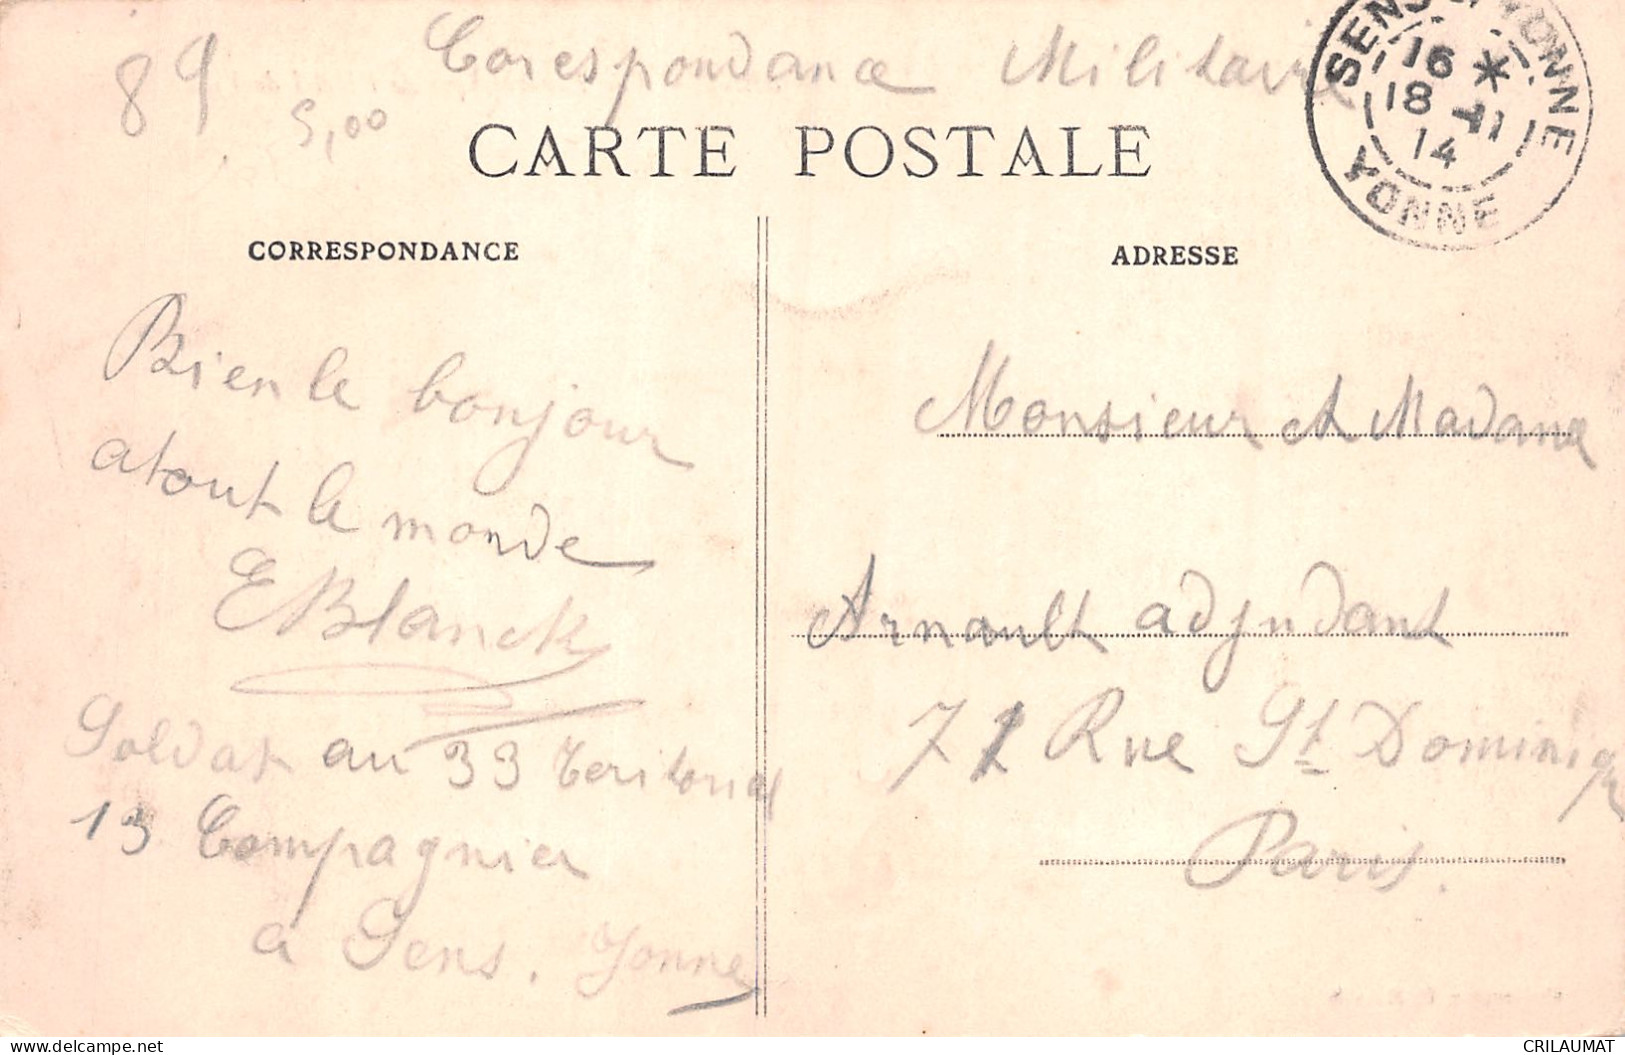 89
5,00
Corespondance Militaire
CARTE POSTALE
SENS-S-YONNE
16 *
18 -11
14
YONNE
CORRESPONDANCE
Bien le bonjour
atout le monde
E Blanck
Soldat au 33 Teritorial
13 Compagnie
a Sens. Yonne
ADRESSE
Monsieur et Madame
Arnault adjudant
71 Rue St Dominique
Paris.
CRILAUMAT